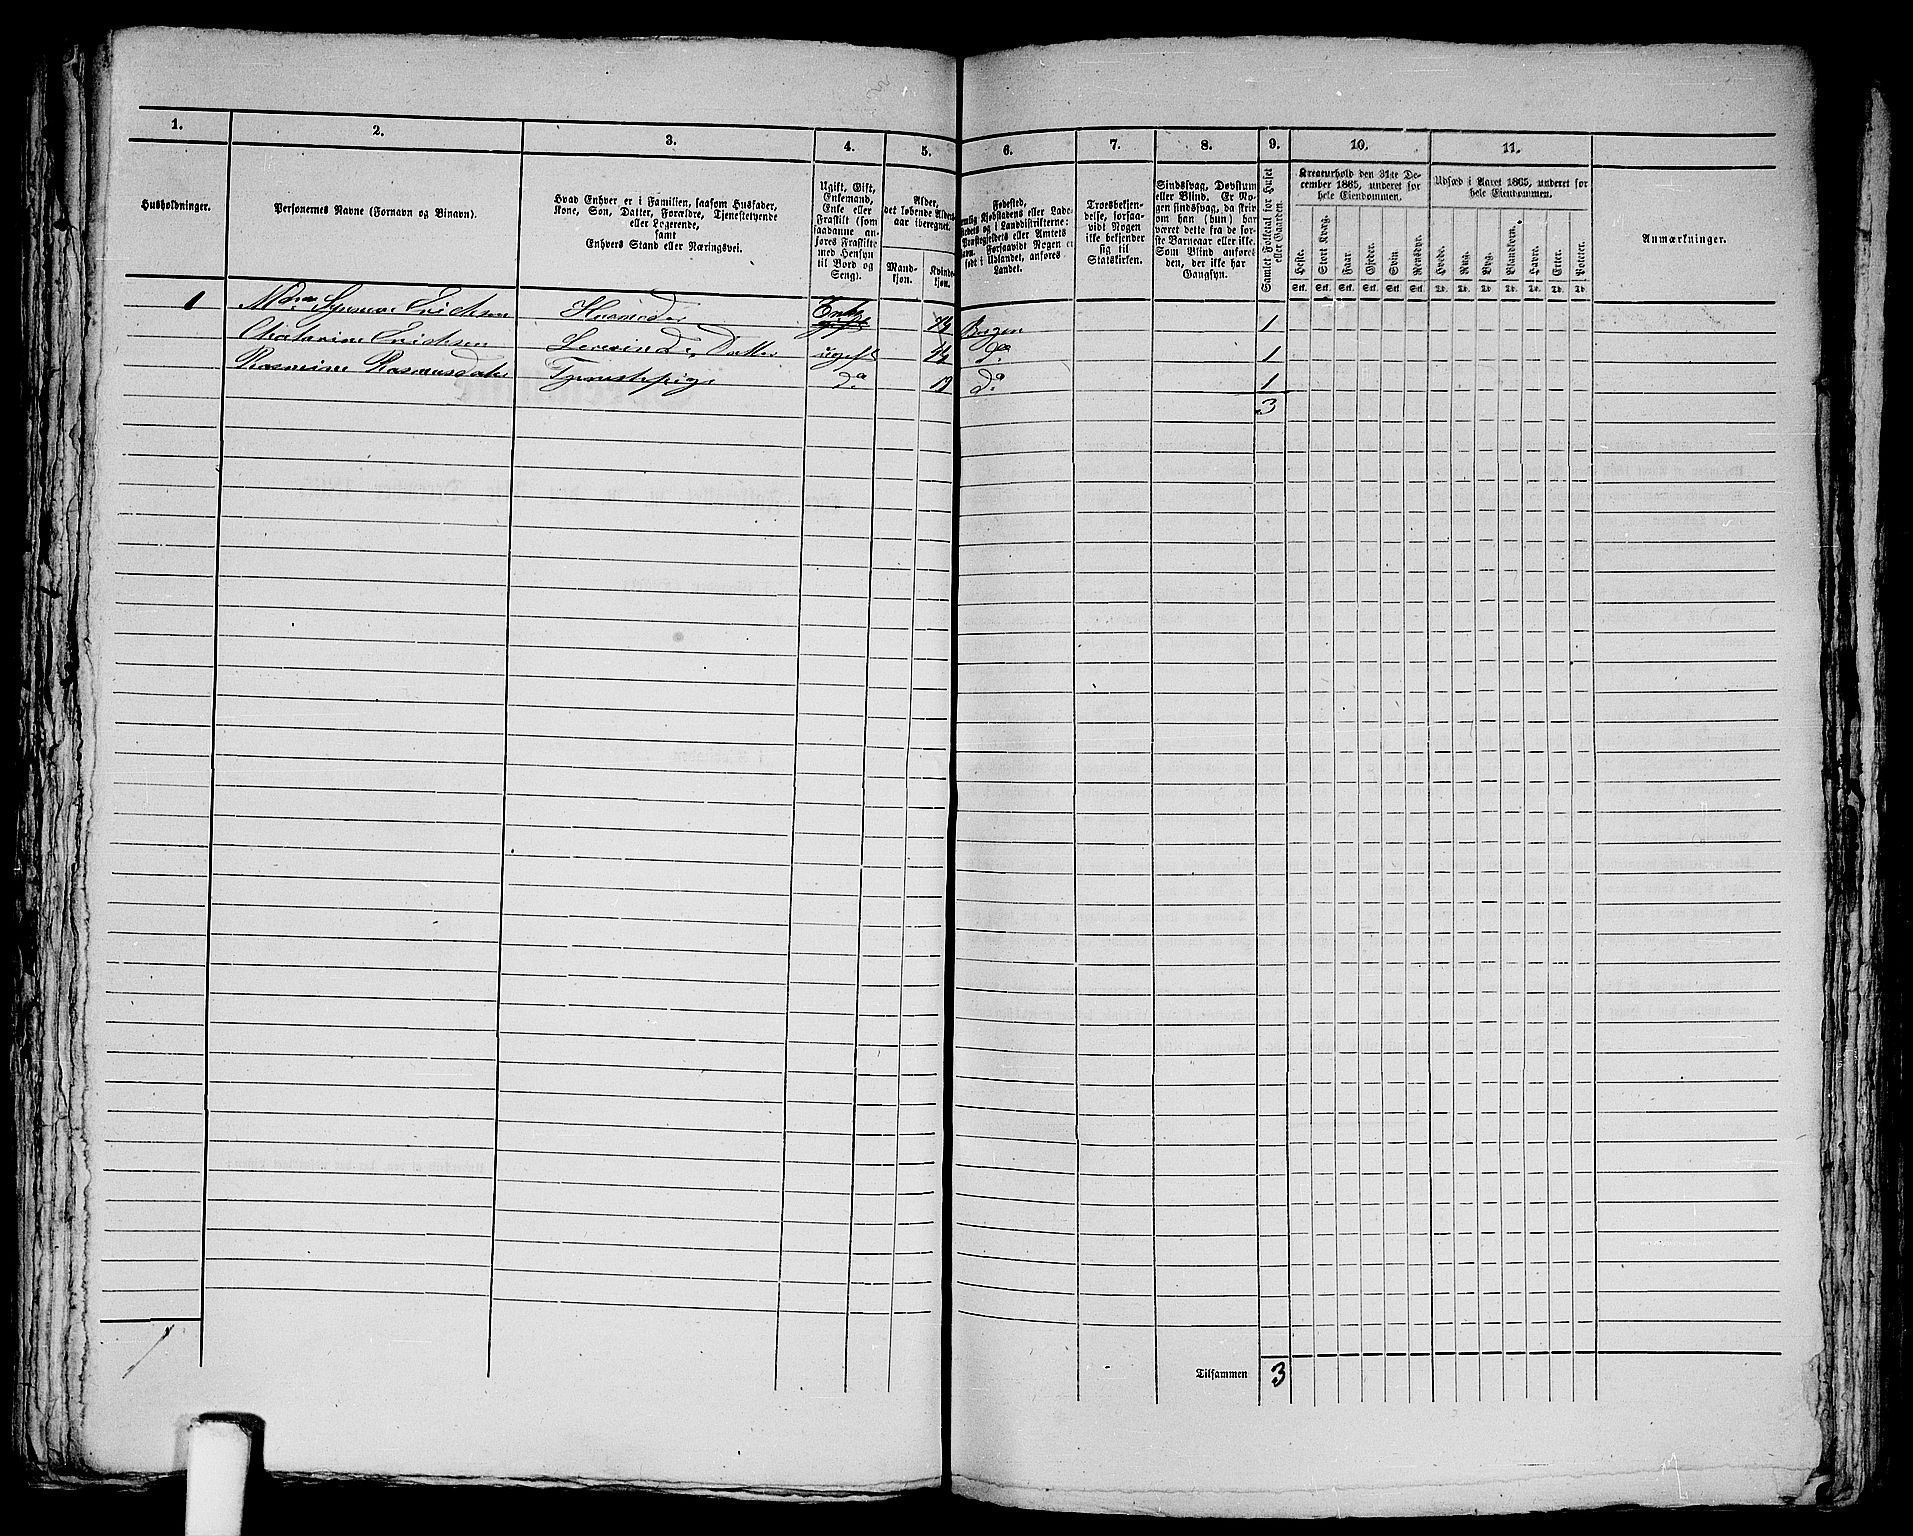 1. 2. 3. 4. 5. 6. 7. 8. 9. 10. 11.
Husholdninger.
Personernes Navne (Fornavn og Binavn).
Hvad Enhver er i Familien, saasom Husfader,
Kone, Søn, Datter, Forældre, Tjenestetyende
eller Logerende,
samt
Enhvers Stand eller Næringsvei.
Ugift, Gift,
Enkemand,
Enke eller
Fraskilt (som
saadanne an-
føres Fraskilte
med Hensyn
til Bord og
Seng).
Alder,
det løbende Alders-
aar iberegnet.
Mand-
kjøn.
Kvinde-
kjøn.
Fødested,
Kjøbstadens eller Lade-
og i Landdistrikterne:
Præstegjeldets eller Amtets
Forsaavidt Nogen er
født i Udlandet, anføres
Landet.
Troesbekjen-
delse, forsaa-
vidt Nogen
ikke bekjender
sig til
Statskirken.
Sindssvag, Døvstum
eller Blind. Er No-
gen sindssvag, da skriv
om han (hun) har
været dette fra de før-
ste Barneaar eller ikke.
Som Blind anføres
den, der ikke har
Gangsyn.
Samlet Folketal for Huset
eller Gaarden.
Kreaturhold den 31te De-
cember 1865, underet for
hele Eiendommen.
Heste. Stort Kvæg. Faar. Gjeder. Svin. Rensdyr.
Stk. Stk. Stk. Stk. Stk. Stk.
Udsæd i Aaret 1865, underet for
hele Eiendommen.
Hvede. Rug. Byg. Blandkorn. Havre. Erter. Poteter.
Td. Td. Td. Td. Td. Td. Td.
Anmærkninger.
1 Erichsen Huusmoder Enke Bergen 1
Erichsen Datter ugift do 1
Rasmine Rasmusdatter Tjenestepige do 19 do 1
3
Tilsammen 3